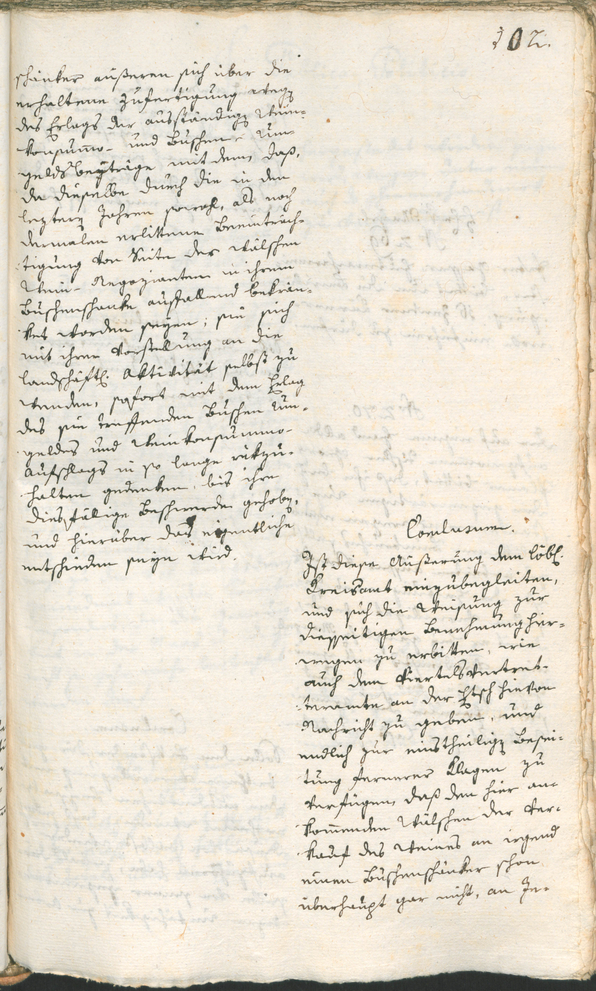 302.
schänker äußeren sich über die
erhaltene Zufertigung wegen
des Erlags der ausständigen Wein-
konsumo- und Buschen- Um-
geldsbeyträge mit dem, daß,
da dieselbe durch die in den
leztern Jahren sowohl, als noch
dermalen erlittene Beeinträch-
tigung von Seite der wälschen
Wein-Negozianten in ihrem
Buschenschanke auffallend bekrän-
ket worden seyen; sie sich
mit ihrer Vorstellung an die
landschäftl. Aktivität selbst zu
wenden, sofort mit dem Erlag
des sie treffenden Buschen Um-
geldes und Weinkonsummo-
Aufschlags in so lange rükzu-
halten gedenken, bis ihre
diesfälige Beschwerde gehoben,
und hierüber das eigentliche
entschieden seyn wird.
Conclusum.
Ist diese Äußerung dem löbl.
Kreisamt einzubegleiten,
und sich die Weisung zur
diesseitigen Benehmung hier-
wegen zu erbitten, wie
auch dem Viertelsvertret-
teramte an der Etsch hievon
Nachricht zu geben, und
endlich zur einstheiligen Besei-
tung fernerer Klagen zu
verfügen, daß den hier an-
kommenden Wälschen der Ver-
kauf des Weines an irgend
einen Buschenschänker schon
überhaupt gar nicht, an In-